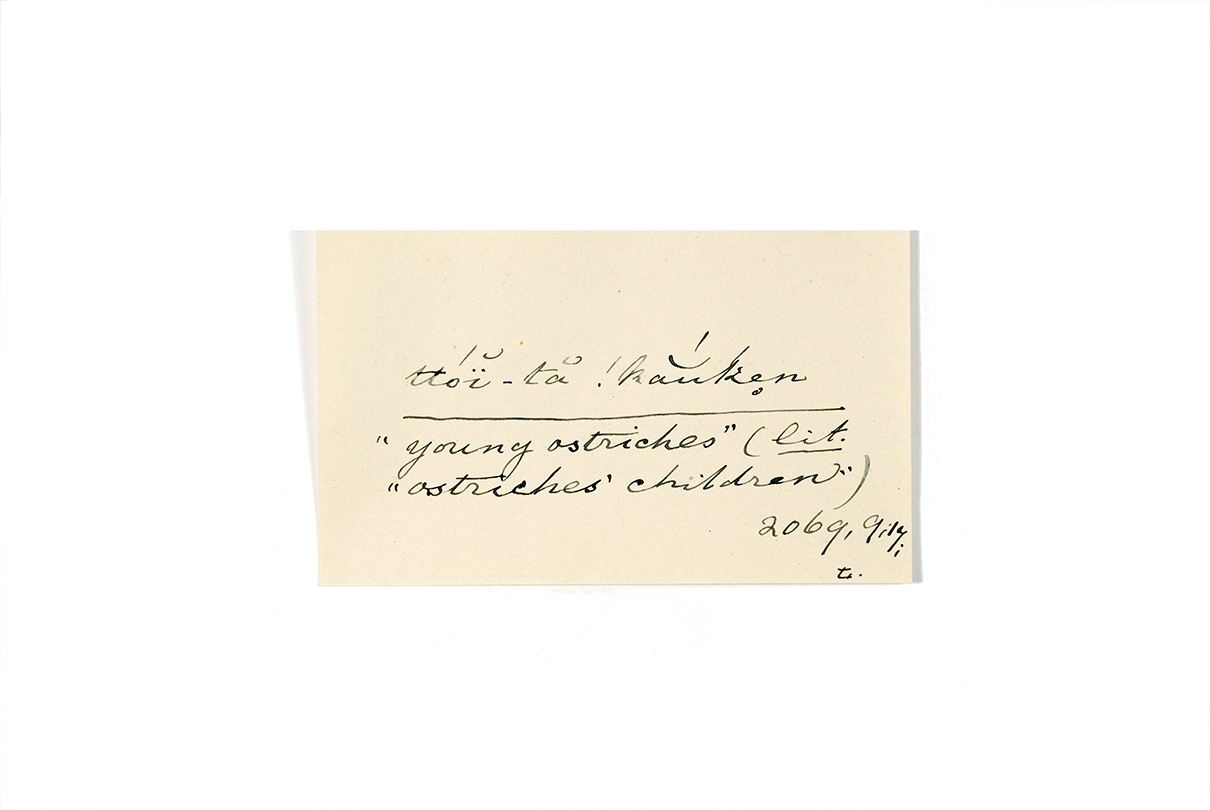 ttóï̆ - tă !kắŭken̥
"young ostriches" (lit.
"ostriches' children")
2069, 9, 17,